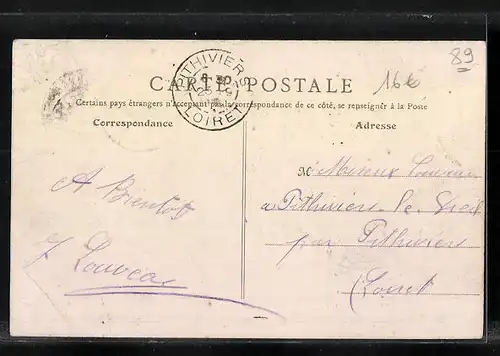 89
PITHIVIERS
LOIRET
CARTE POSTALE
16€
Certains pays étrangers n'acceptant pas la correspondance de ce côté, se renseigner à la Poste
Correspondance
Adresse
A Bientôt
Louveau
M
à Pithiviers le Vieil
par Pithiviers
Loiret